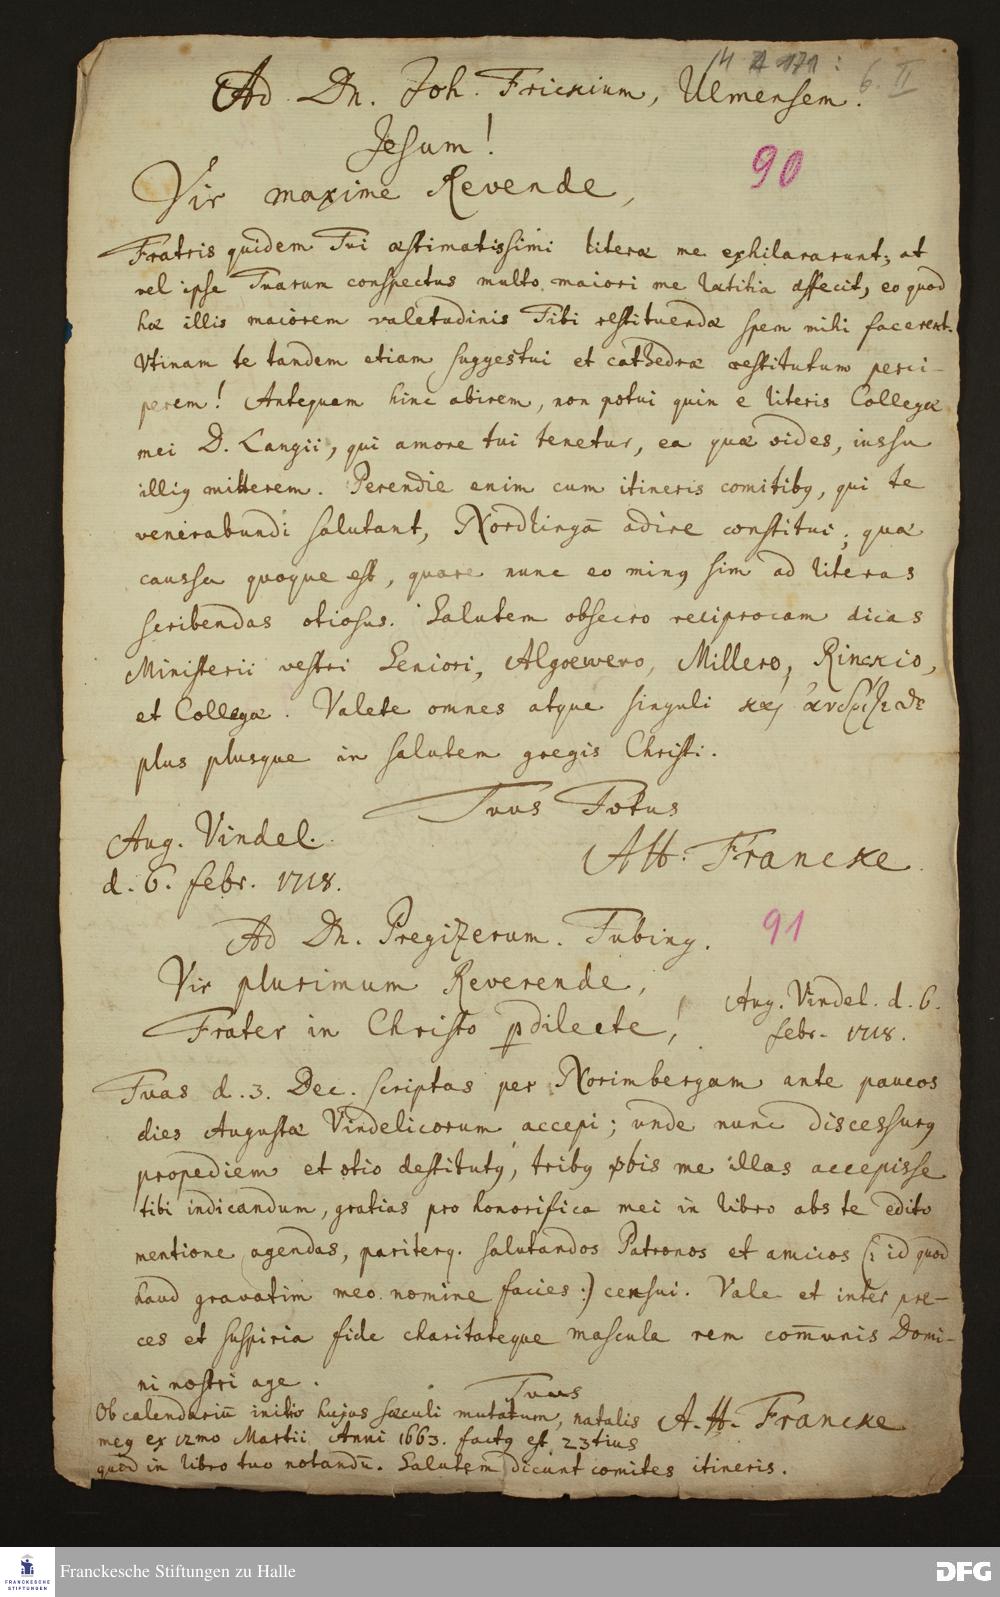 14 171:
6. II
Ad Dn. Joh. Frickium, Ulmensem.
Jesum!
90
Vir maxime Revende,
Fratris quidem Tui æstimatissimi literæ me exhilararunt; at
vel ipse Tuarum conspectus multo maiori me lætitia affecit, eo quod
hæ illis maiorem valetudinis Tibi restituendæ spem mihi facerent.
Vtinam te tandem etiam suggestui et cathedræ restitutum perci-
perem! Antequam hinc abirem, non potui quin e literis Collegæ
mei D. Langii, qui amore tui tenetur, ea quæ vides, iussu
illiꝯ mitterem. Perendie enim cum itineris comitibꝯ, qui te
venerabundi salutant, Nordlingā adire constitui; quæ
caussa quoque est, quare nunc eo minꝯ sim ad literas
scribendas otiosus. Salutem obsecro reciprocam dicas
Ministerii vestri Seniori, Algoewero, Millero, Rinckio,
et Collegæ. Valete omnes atque singuli καὶ ἀνδρίζεσθε
plus plusque in salutem gregis Christi.
Tuus Totus
AH. Francke.
Aug. Vindel.
d. 6. febr. 1718.
Ad Dn. Pregizerum. Tubing.
91
Vir plurimum Reverende,
Frater in Christo pdilecte!
Aug. Vindel. d. 6.
febr. 1718.
Tuas d. 3. Dec. scriptas per Norimbergam ante paucos
dies Augustæ Vindelicorum accepi; unde nunc discessurꝯ
propediem et otio destitutꝯ, tribꝯ vbis me illas accepisse
tibi indicandum, gratias pro honorifica mei in libro abs te edito
mentione agendas, pariterq. salutandos Patronos et amicos (: id quod
haud gravatim meo nomine facies :) censui. Vale et inter pre-
ces et suspiria fide charitateque mascula rem com̄unis Domi-
ni nostri age.
Tuus
A. H. Francke
Ob calendariū initio hujus sæculi mutatum, natalis
meꝯ ex 12mo Martii Anni 1663. factꝯ est 23tius
quod in libro tuo notandū. Salutem dicunt comites itineris.
FRANCKESCHE
STIFTUNGEN
Franckesche Stiftungen zu Halle
DFG